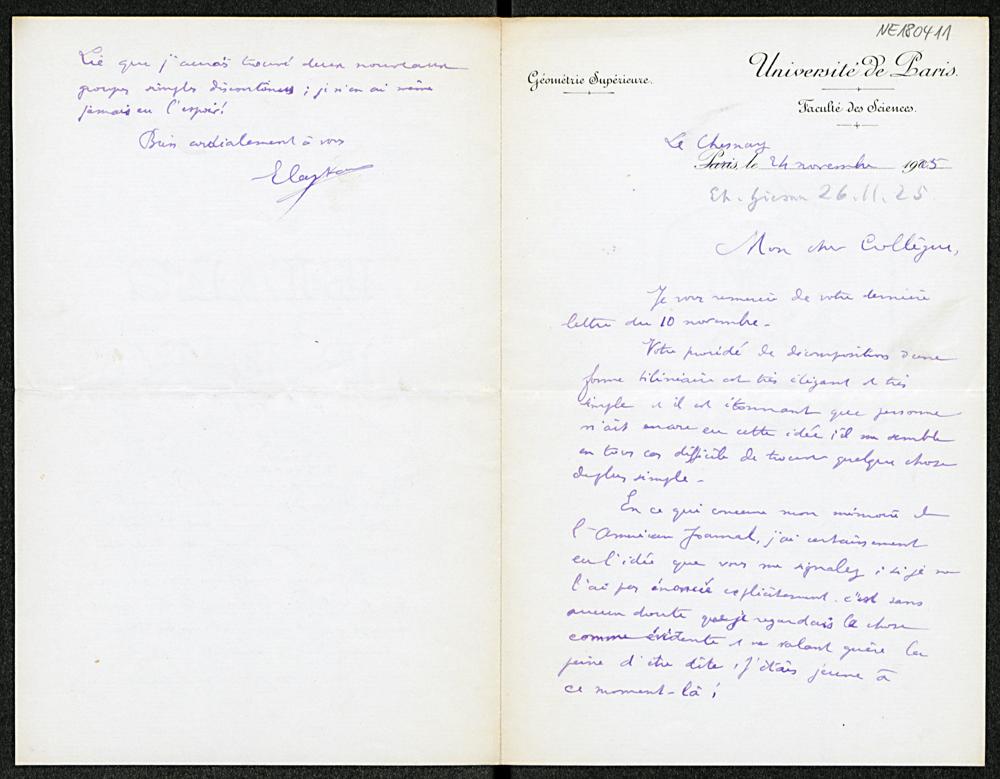 Lie que j'aurais trouvé deux nouveaux
groupes simples discontinus ; je n'en ai même
jamais eu l'espoir!
Bien cordialement à vous
E Cartan
NE180411
Géométrie Supérieure.
Université de Paris.
Faculté des Sciences.
Le Chesnay
Paris, le 24 novembre 1925
26.11.25
Mon cher Collègue,
Je vous remercie de votre dernière
lettre du 10 novembre.
Votre procédé de décomposition d'une
forme bilinéaire est très élégant et très
simple et il est étonnant que personne
n'ait encore eu cette idée ; il me semble
en tous cas difficile de trouver quelque chose
de plus simple.
En ce qui concerne mon mémoire de
l'American Journal, j'ai certainement
eu l'idée que vous me signalez ; si je ne
l'ai pas énoncée explicitement, c'est sans
aucun doute que je regardais la chose
comme évidente et ne valant guère la
peine d'être dite ; j'étais jeune à
ce moment-là !